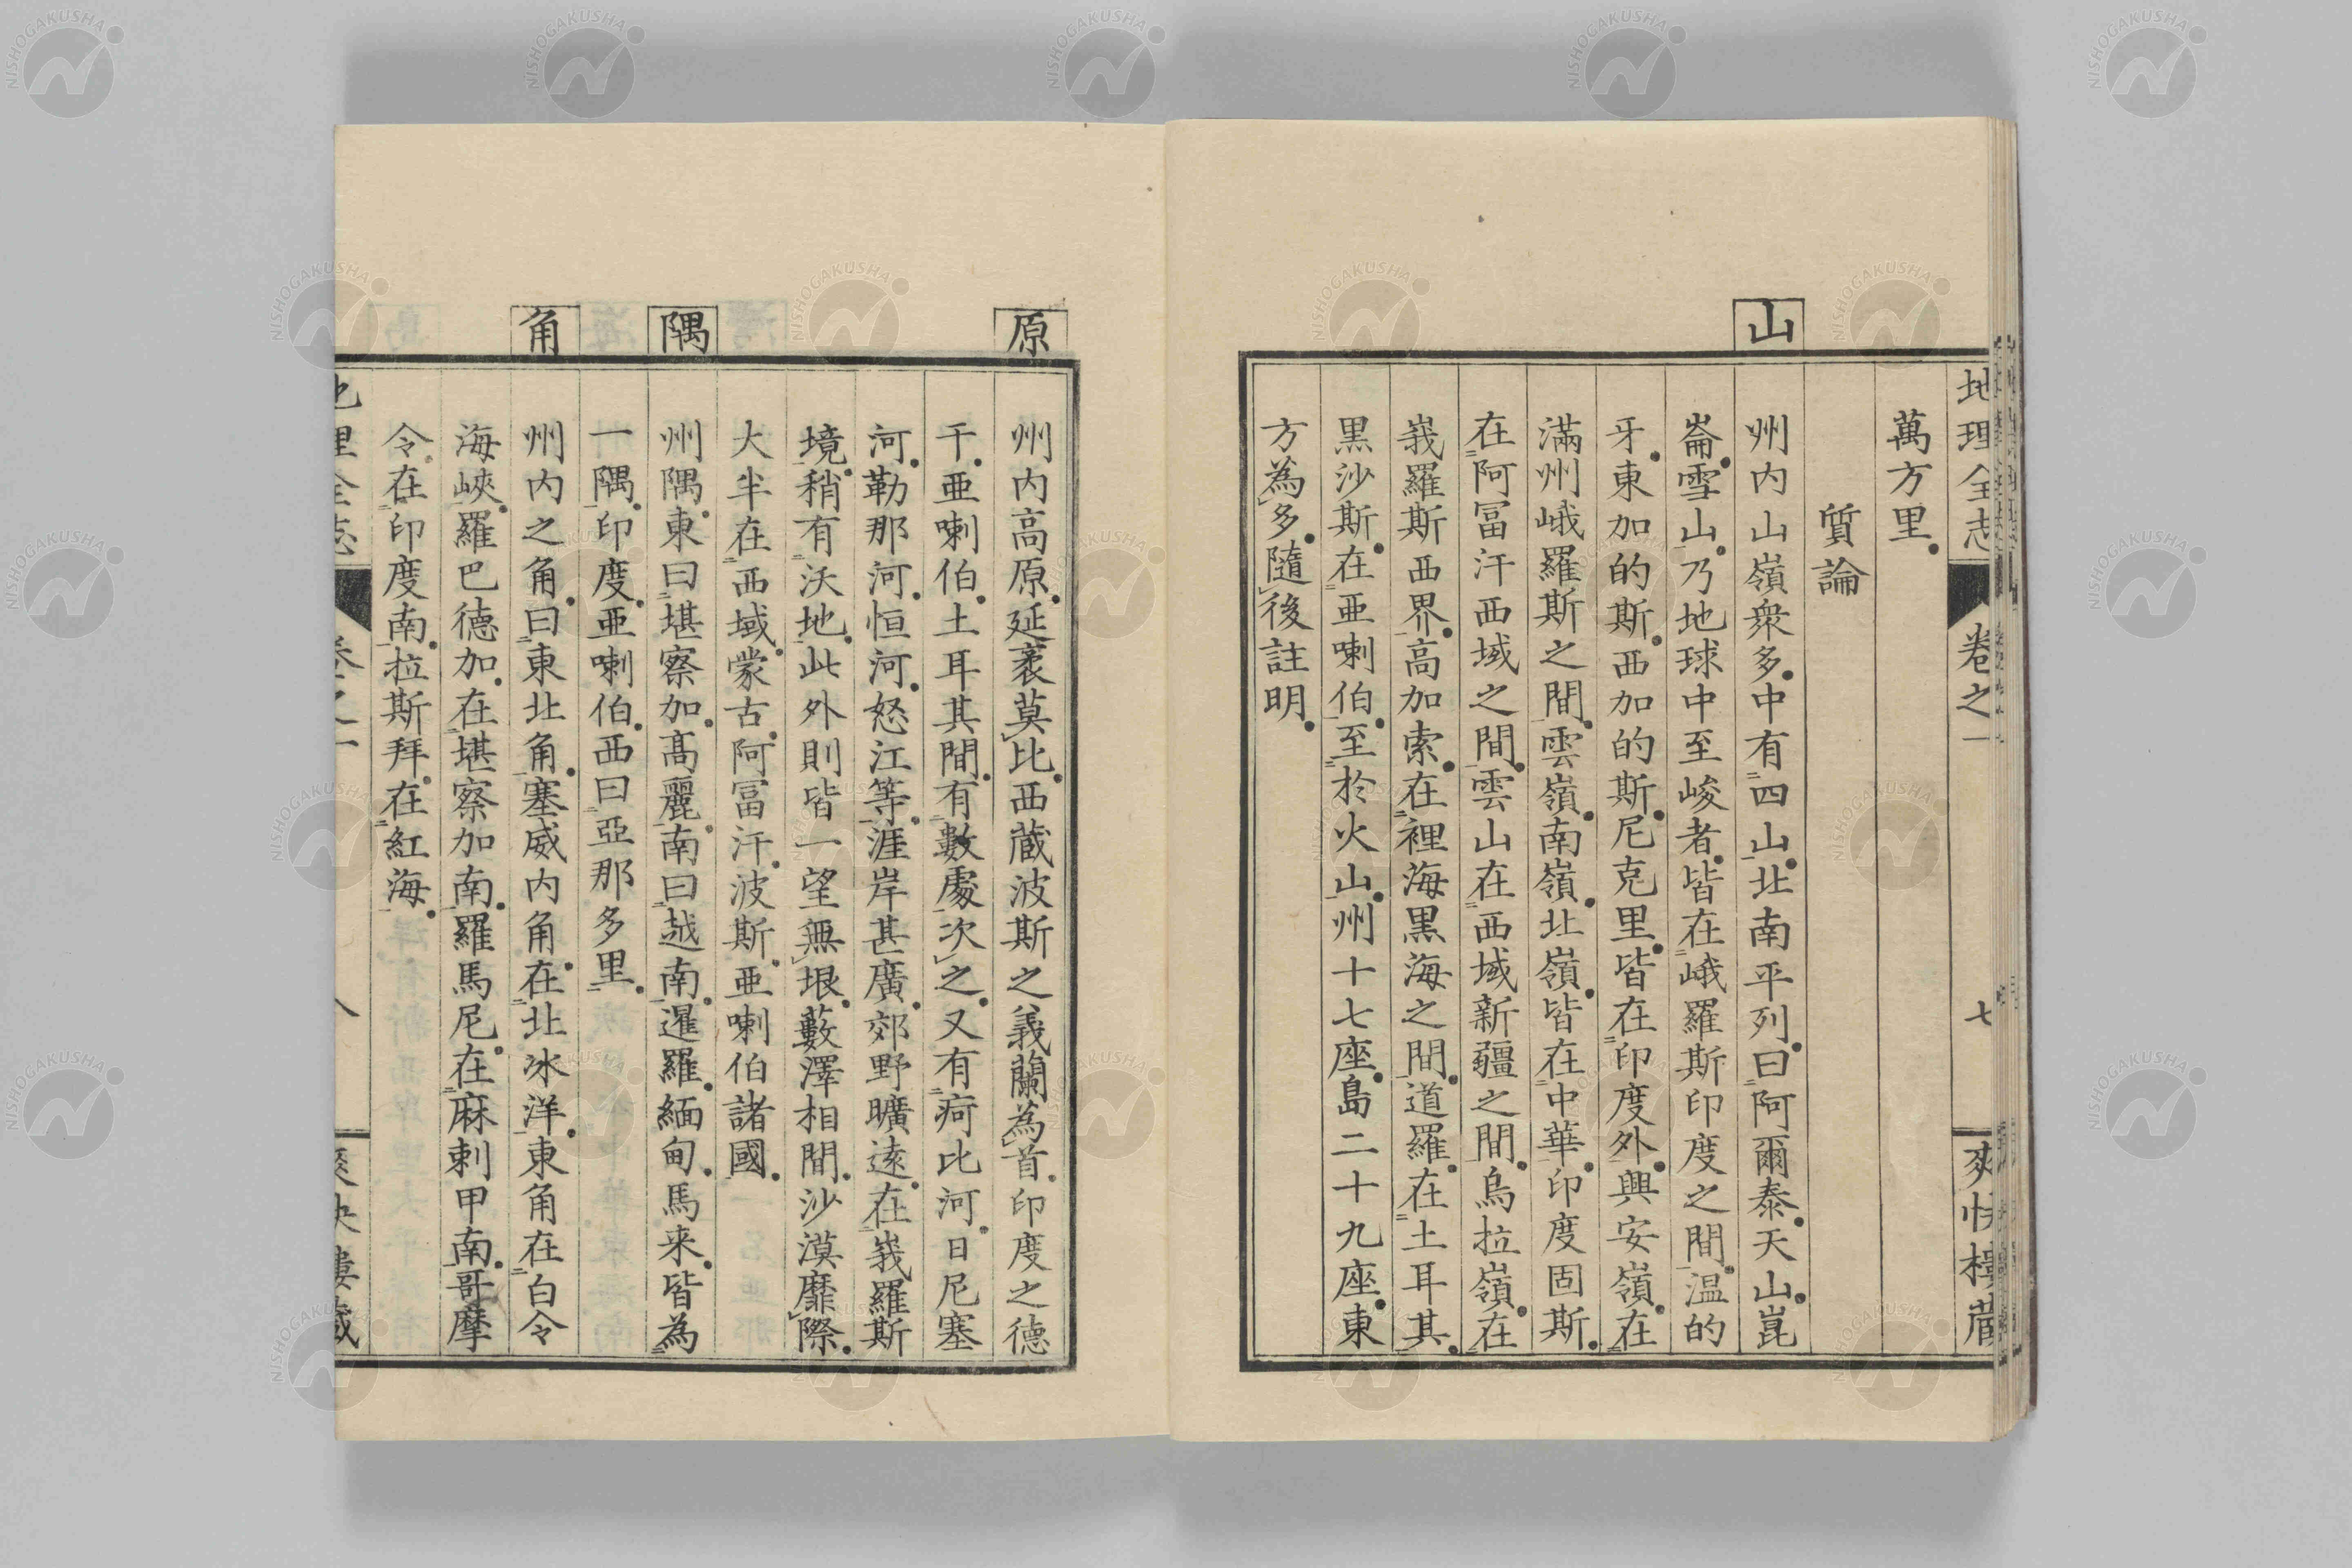 地理全志 卷之一 七 爽快樓藏
萬方里
質論
山
州内山嶺衆多中有四山北南平列曰阿爾泰天山崑
崙雪山乃地球中至峻者皆在峨羅斯印度之間温的
牙東加的斯西加的斯尼克里皆在印度外興安嶺在
滿州峨羅斯之間雲嶺南嶺北嶺皆在中華印度固斯
在阿冨汗西域之間雲山在西域新疆之間烏拉嶺在
峩羅斯西界高加索在裡海黒海之間道羅在土耳其
黒沙斯在亜喇伯至於火山州十七座島二十九座東
方為多隨後註明
原
州内高原延袤莫比西蔵波斯之義蘭為首印度之德
干亜喇伯土耳其間有數處次之又有疴比河日尼塞
河勒那河恒河怒江等涯岸甚廣郊野曠遠在峩羅斯
境稍有沃地此外則皆一望無垠藪澤相間沙漠靡際
大半在西域蒙古阿冨汗波斯亜喇伯諸國
隅
州隅東曰堪察加髙麗南曰越南暹羅緬甸馬来皆為
一隅印度亜喇伯西曰亞那多里
角
州内之角曰東北角塞威内角在北冰洋東角在白令
海峽羅巴德加在堪察加南羅馬尼在麻剌甲南哥摩
令在印度南拉斯拜在紅海
地理全志 卷之一 八 爽快樓藏
NISHOGAKUSHA